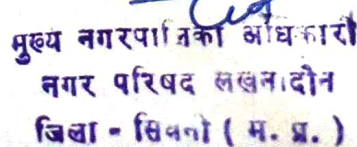 मुख्य नगरपालिका अधिकारी
नगर परिषद लखनादौन
जिला - सिवनी ( म. प्र. )